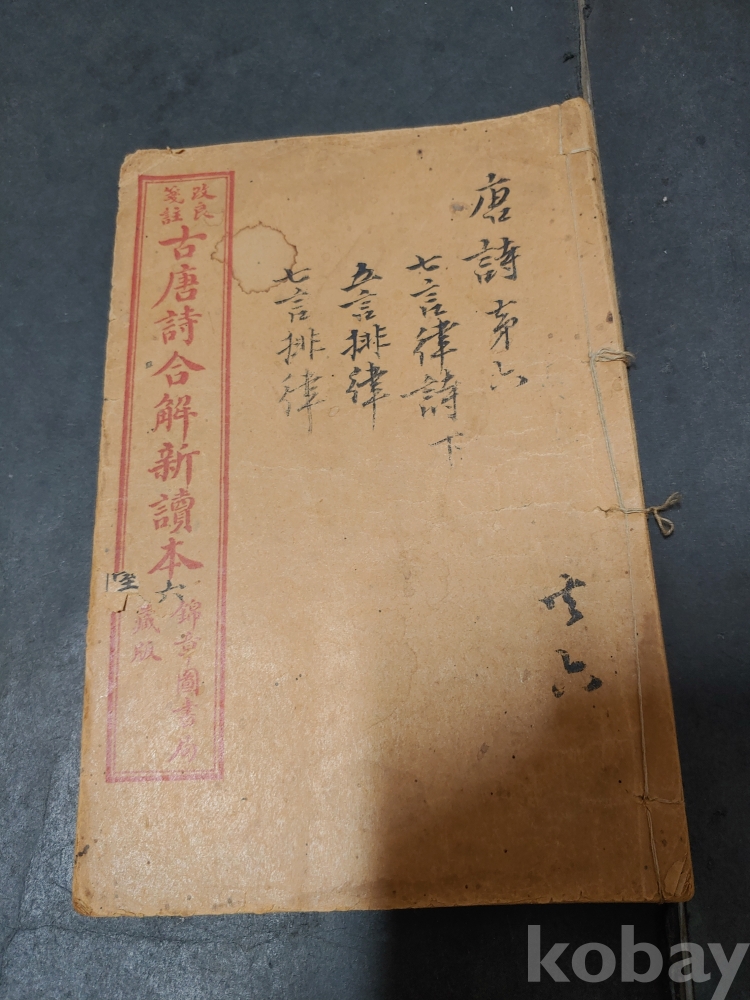 唐詩㐧六
七言律詩下
五言排律
七言排律
共六
改良
箋註
古唐詩合解新讀本
六
錦章圖書局
藏版
kobay